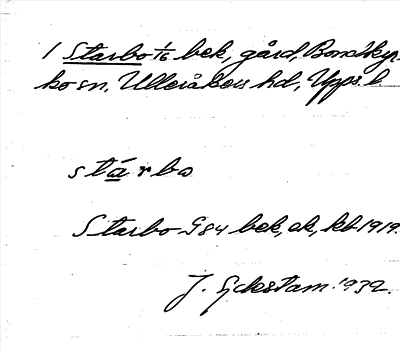 1 Starbo 1/6 bek, gård, Bondkyr-
ko sn, Ulleråkers hd, Upps. l.
stárbo
Starbo G84 bek, ek, kb 1919.
J. 1932.